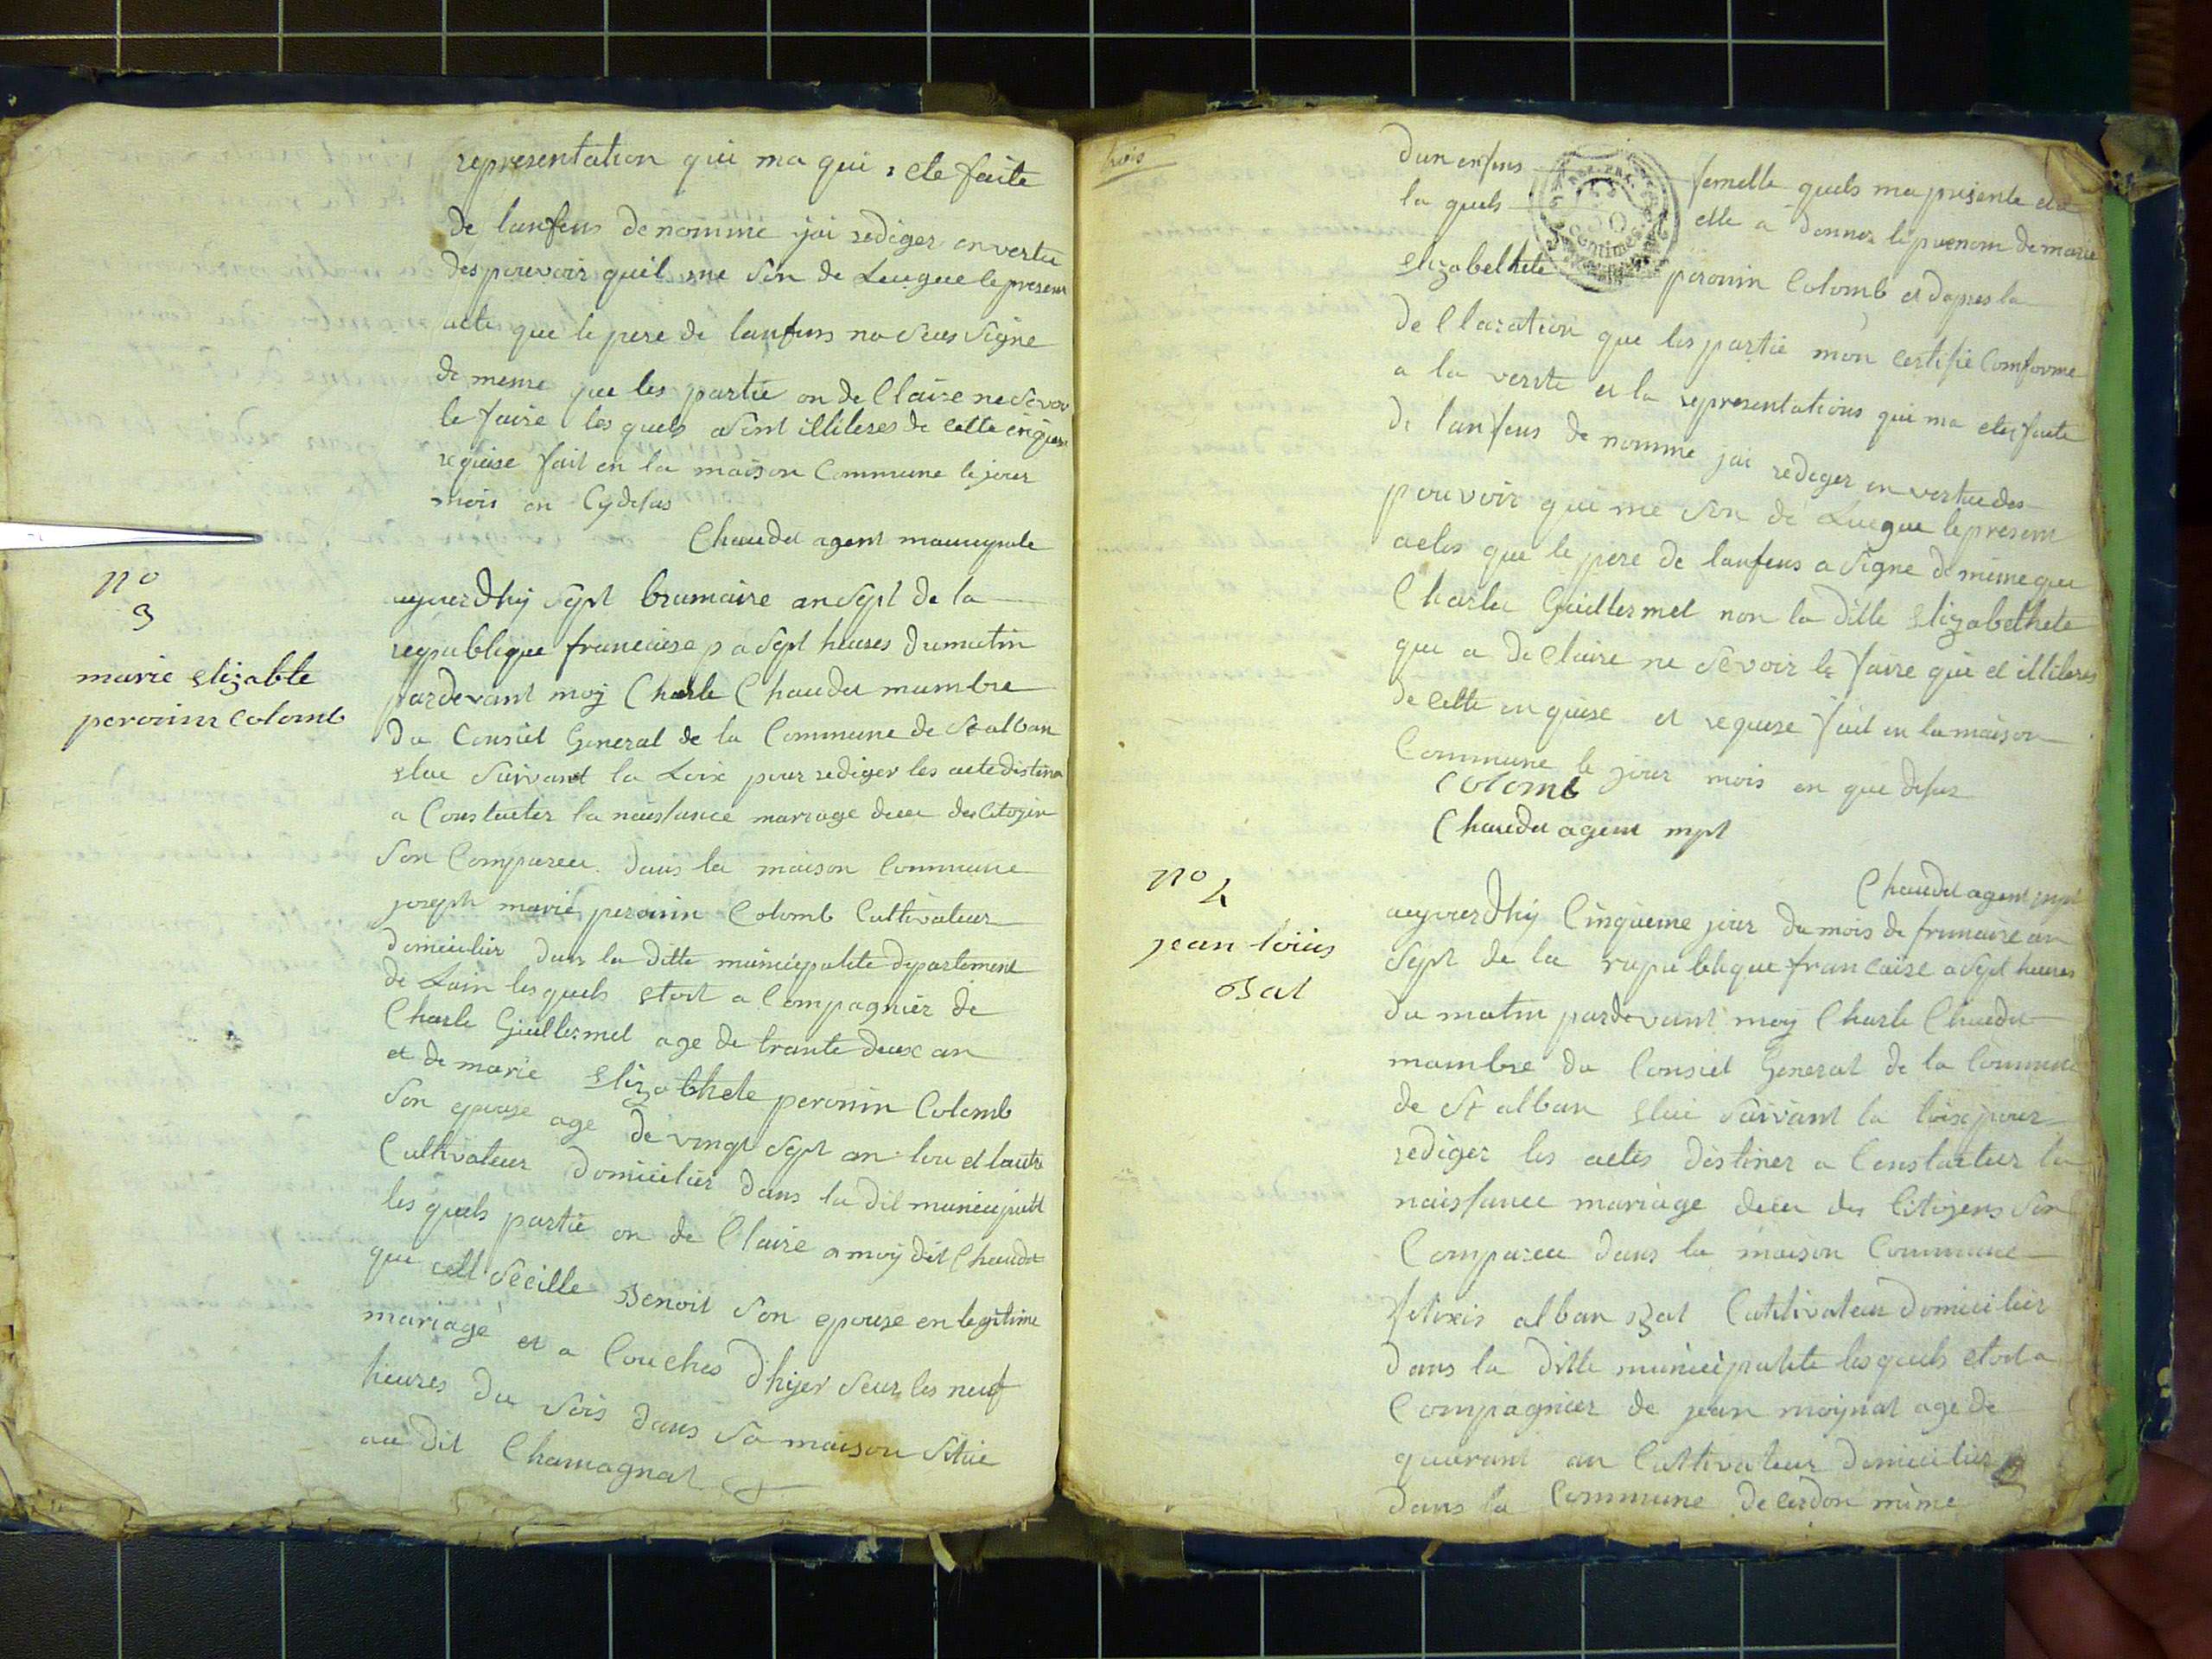 representation qui ma qui ete faite
de lanfens denomme jai rediger en vertu
des pouvoir quil me son de Leugue le presen
acte que le pere de lanfens na seus signe
de meme que les partie on de Claire ne sevoi
le faire les quels sont illiteres de cette enquise
requise fait en la maison Commune le jour
mois en Cydesus
Chaudet agent
no
3
marie elizabte
peronin colomb
aujourdhÿ sept brumaire an sept de la
republique francaise a sept heures dumatin
pardevant moÿ Charle Chaudet mambre
du Consiel General de la Commune de St alban
elue suivant la Loix pour rediger les acte destine
a Constater la naissance mariage deces des Citoyen
son Compareu dans la maison Commune
joseph marie peronin Colomb Cultivateur
domicilier dans la ditte municipalite departement
de Lain les quels etoit a Compagnier de
Charle Guillermet age de trante deux an
et de marie Elizabthete peronin Colomb
son epouse age de vingt sept an lou et lautre
Cultivateur domicilier dans la dit municipalit
les quels partie on de Claire a moÿ dit Chaudet
que cett Secille Benoit son epouse en legitime
mariage et a Couches dhÿer seur les neuf
heures du soir dans sa maison sitüe
au dit Chamagnat
trois
dun enfens femelle quels ma presente et a
la quels elle a donner le prenom de marie
elizabethete peronin Colomb et dapres la
de Claration que les partie mon certifié Comforme
a la verite et la representations qui ma etes faite
de lanfens de nomme jai rediger en vertue des
pouvoir qui me son de Luegue le present
actes que le pere de lanfens a signe de meme que
Charle Guillermet non la ditte elizabethete
que a de Claire ne sevoir le faire qui et illiteres
de cette enquise et requise fait en la maison
Commune le jour mois en que desus
Colomb
Chaudet agent mpl
Chaudet agent mpl
no 4
jean loüis
Bat
aujourdhÿ Cinquieme jour du mois de frimaire an
sept de la republique francaise a sept heures
du matin pardevant moÿ Charle Chaudet
mambre du Consiel General de la Commune
de St alban elue suivant la loix pour
rediger les actes destiner a Constater la
naissance mariage deces des Citoyens son
Compareu dans la maison Commune
alban Bat Cultivateur domicilier
dans la ditte municipalite les quels etoit a
Compagnier de jean moynat age de
quarant an Cultivateur domicilier
dans la Commune de cerdon même